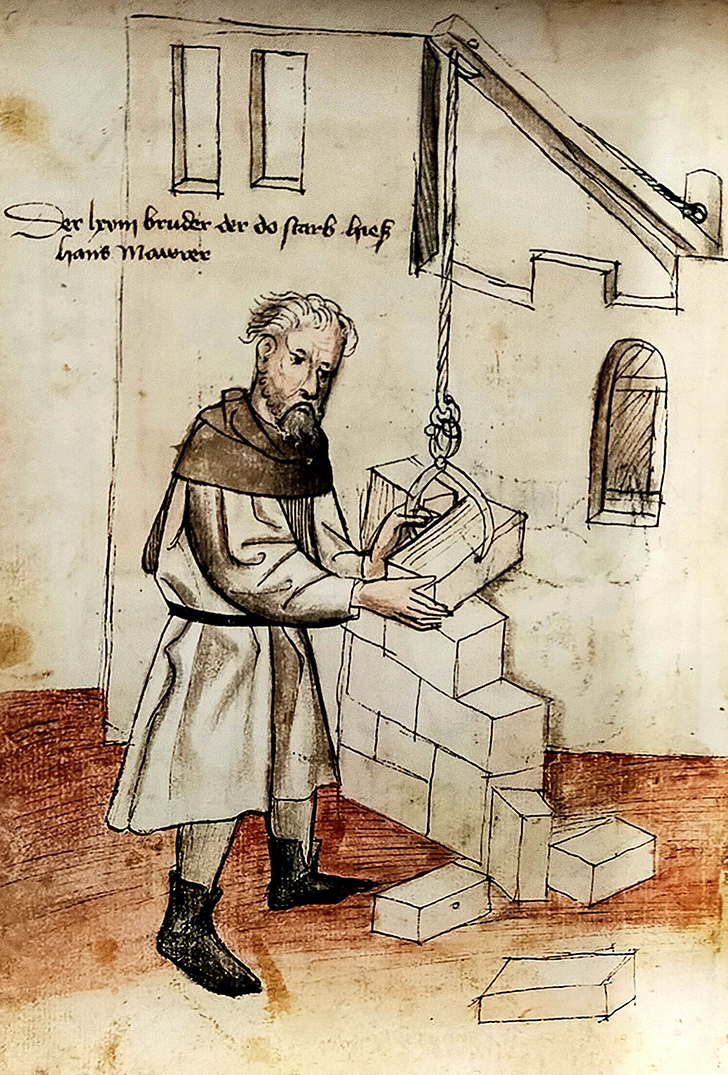 Der lxviij bruder der do starb hieß
hans Mawrer